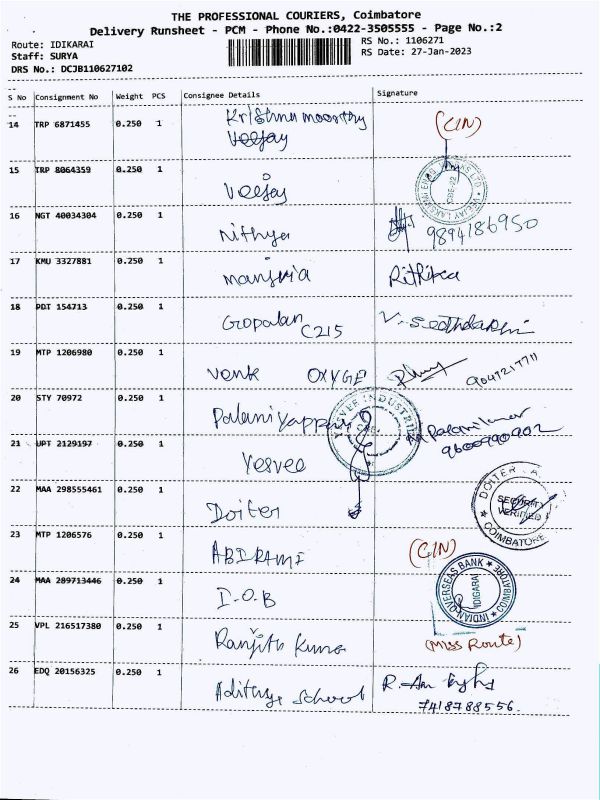 THE PROFESSIONAL COURIERS, Coimbatore
Delivery Runsheet - PCM - Phone No.:0422-3505555 - Page No.:2
Route: IDIKARAI
Staff: SURYA
DRS No.: DCJB110627102
RS No.: 1106271
RS Date: 27-Jan-2023
S No Consignment No Weight PCS Consignee Details Signature
14 TRP 6871455 0.250 1 Krishna moorthy (CIN)
Veejay
15 TRP 8064359 0.250 1 Veejay
16 NGT 40034304 0.250 1 Nithya 9894186950
17 KMU 3327881 0.250 1 Rithika
18 PDT 154713 0.250 1 Gopalan C215
19 MTP 1206980 0.250 1 Venk OXYGE 9047217711
20 STY 70972 0.250 1 Palaniyappan Palanikumar
9600990902
21 UPT 2129197 0.250 1 Yesvee
22 MAA 298555461 0.250 1 Doiter
DOITER
SECURITY
VERIFIED
COIMBATORE
23 MTP 1206576 0.250 1 ABIRAMI (CIN)
24 MAA 289713446 0.250 1 I.O.B
INDIAN OVERSEAS BANK
IDIGARAI
COIMBATORE
25 VPL 216517380 0.250 1 Ranjith Kumar (Miss Route)
26 EDQ 20156325 0.250 1 Adithya School
7418788556